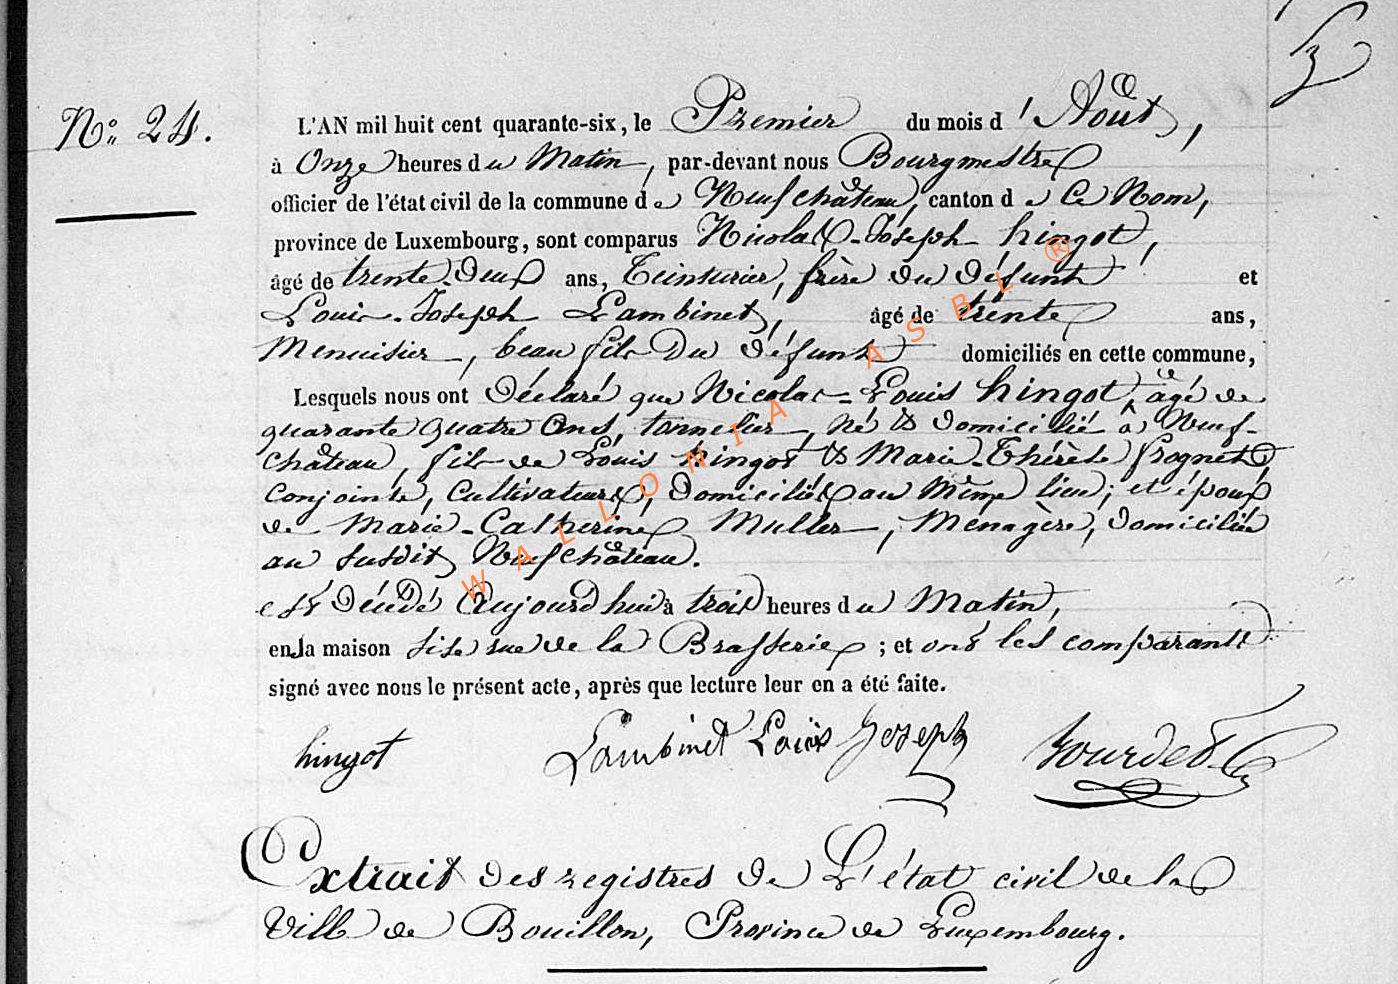 Nº 24.
L'AN mil huit cent quarante-six, le Premier du mois d'Août,
à Onze heures du Matin, par-devant nous Bourgmestre
officier de l'état civil de la commune de Neufchâteau, canton de Ce Nom,
province de Luxembourg, sont comparus Nicolas-Joseph hingot,
âgé de trente-deux ans, Teinturier, frère du défunt et
Louis-Joseph Lambinet, âgé de trente ans,
Menuisier, beau fils du défunt domiciliés en cette commune,
Lesquels nous ont déclaré que Nicolas-Louis hingot, âgé de
quarante quatre ans, tonnelier, né & domicilié à Neuf-
château, fils de Louis hingot & Marie-Thérèse frognet
conjoints, cultivateurs, domiciliés au même lieu; et époux
de Marie-Catherine Muller, Ménagère, domiciliée
au susdit Neufchâteau.
est décédé aujourd'hui à trois heures du Matin,
en la maison sise rue de la Brasserie; et ont les comparants
signé avec nous le présent acte, après que lecture leur en a été faite.
hingot Lambinet Louis Joseph Bourdet
Extrait des registres de L'état civil de la
Ville de Bouillon, Province de Luxembourg.
WALLONIA ASBL ®